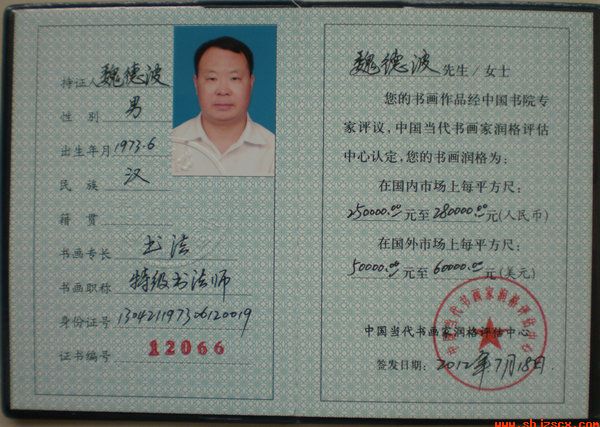 持证人 魏德波
性 别 男
出生年月 1973.6
民 族 汉
籍 贯
书画专长 书法
书画职称 特级书法师
身份证号 130421197306120019
证书编号 12066
魏德波 先生/女士
您的书画作品经中国书院专
家评议,中国当代书画家润格评估
中心认定,您的书画润格为:
在国内市场上每平方尺:
250000.00元至280000.00元(人民币)
在国外市场上每平方尺:
50000.00元至60000.00元(美元)
中国当代书画家润格评估中心
中国当代书画家润格评估中心
签发日期: 2012年7月18日
www.shjzscx.com